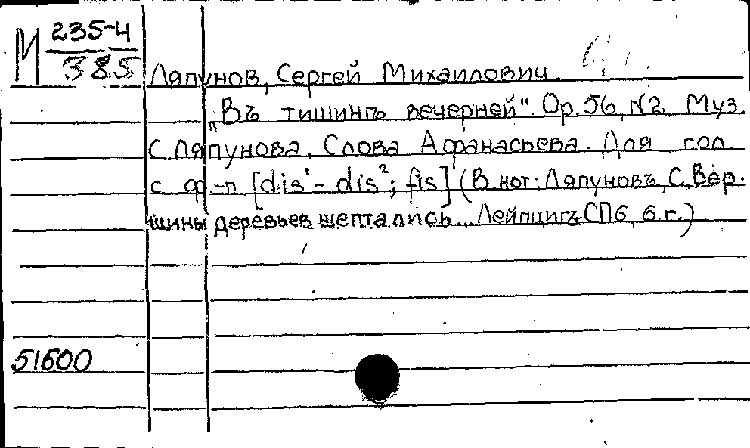 М 235-4
385
Ляпунов, Сергей Михайлович
"Въ тишинѣ вечерней". Op. 56, N2. Муз.
С. Ляпунова, Слова Афанасьева. Для гол.
с ф.-п. [dis¹ - dis²; fis] (В нот: Ляпуновъ, С. Вер-
шины деревьев шептались... Лейпцигъ СПб, б.г.)
51600